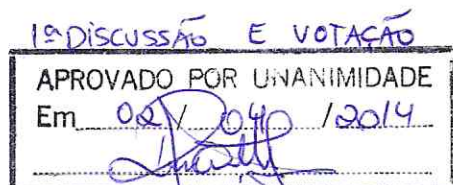 1ª DISCUSSÃO E VOTAÇÃO
APROVADO POR UNANIMIDADE
Em 02/ /2014